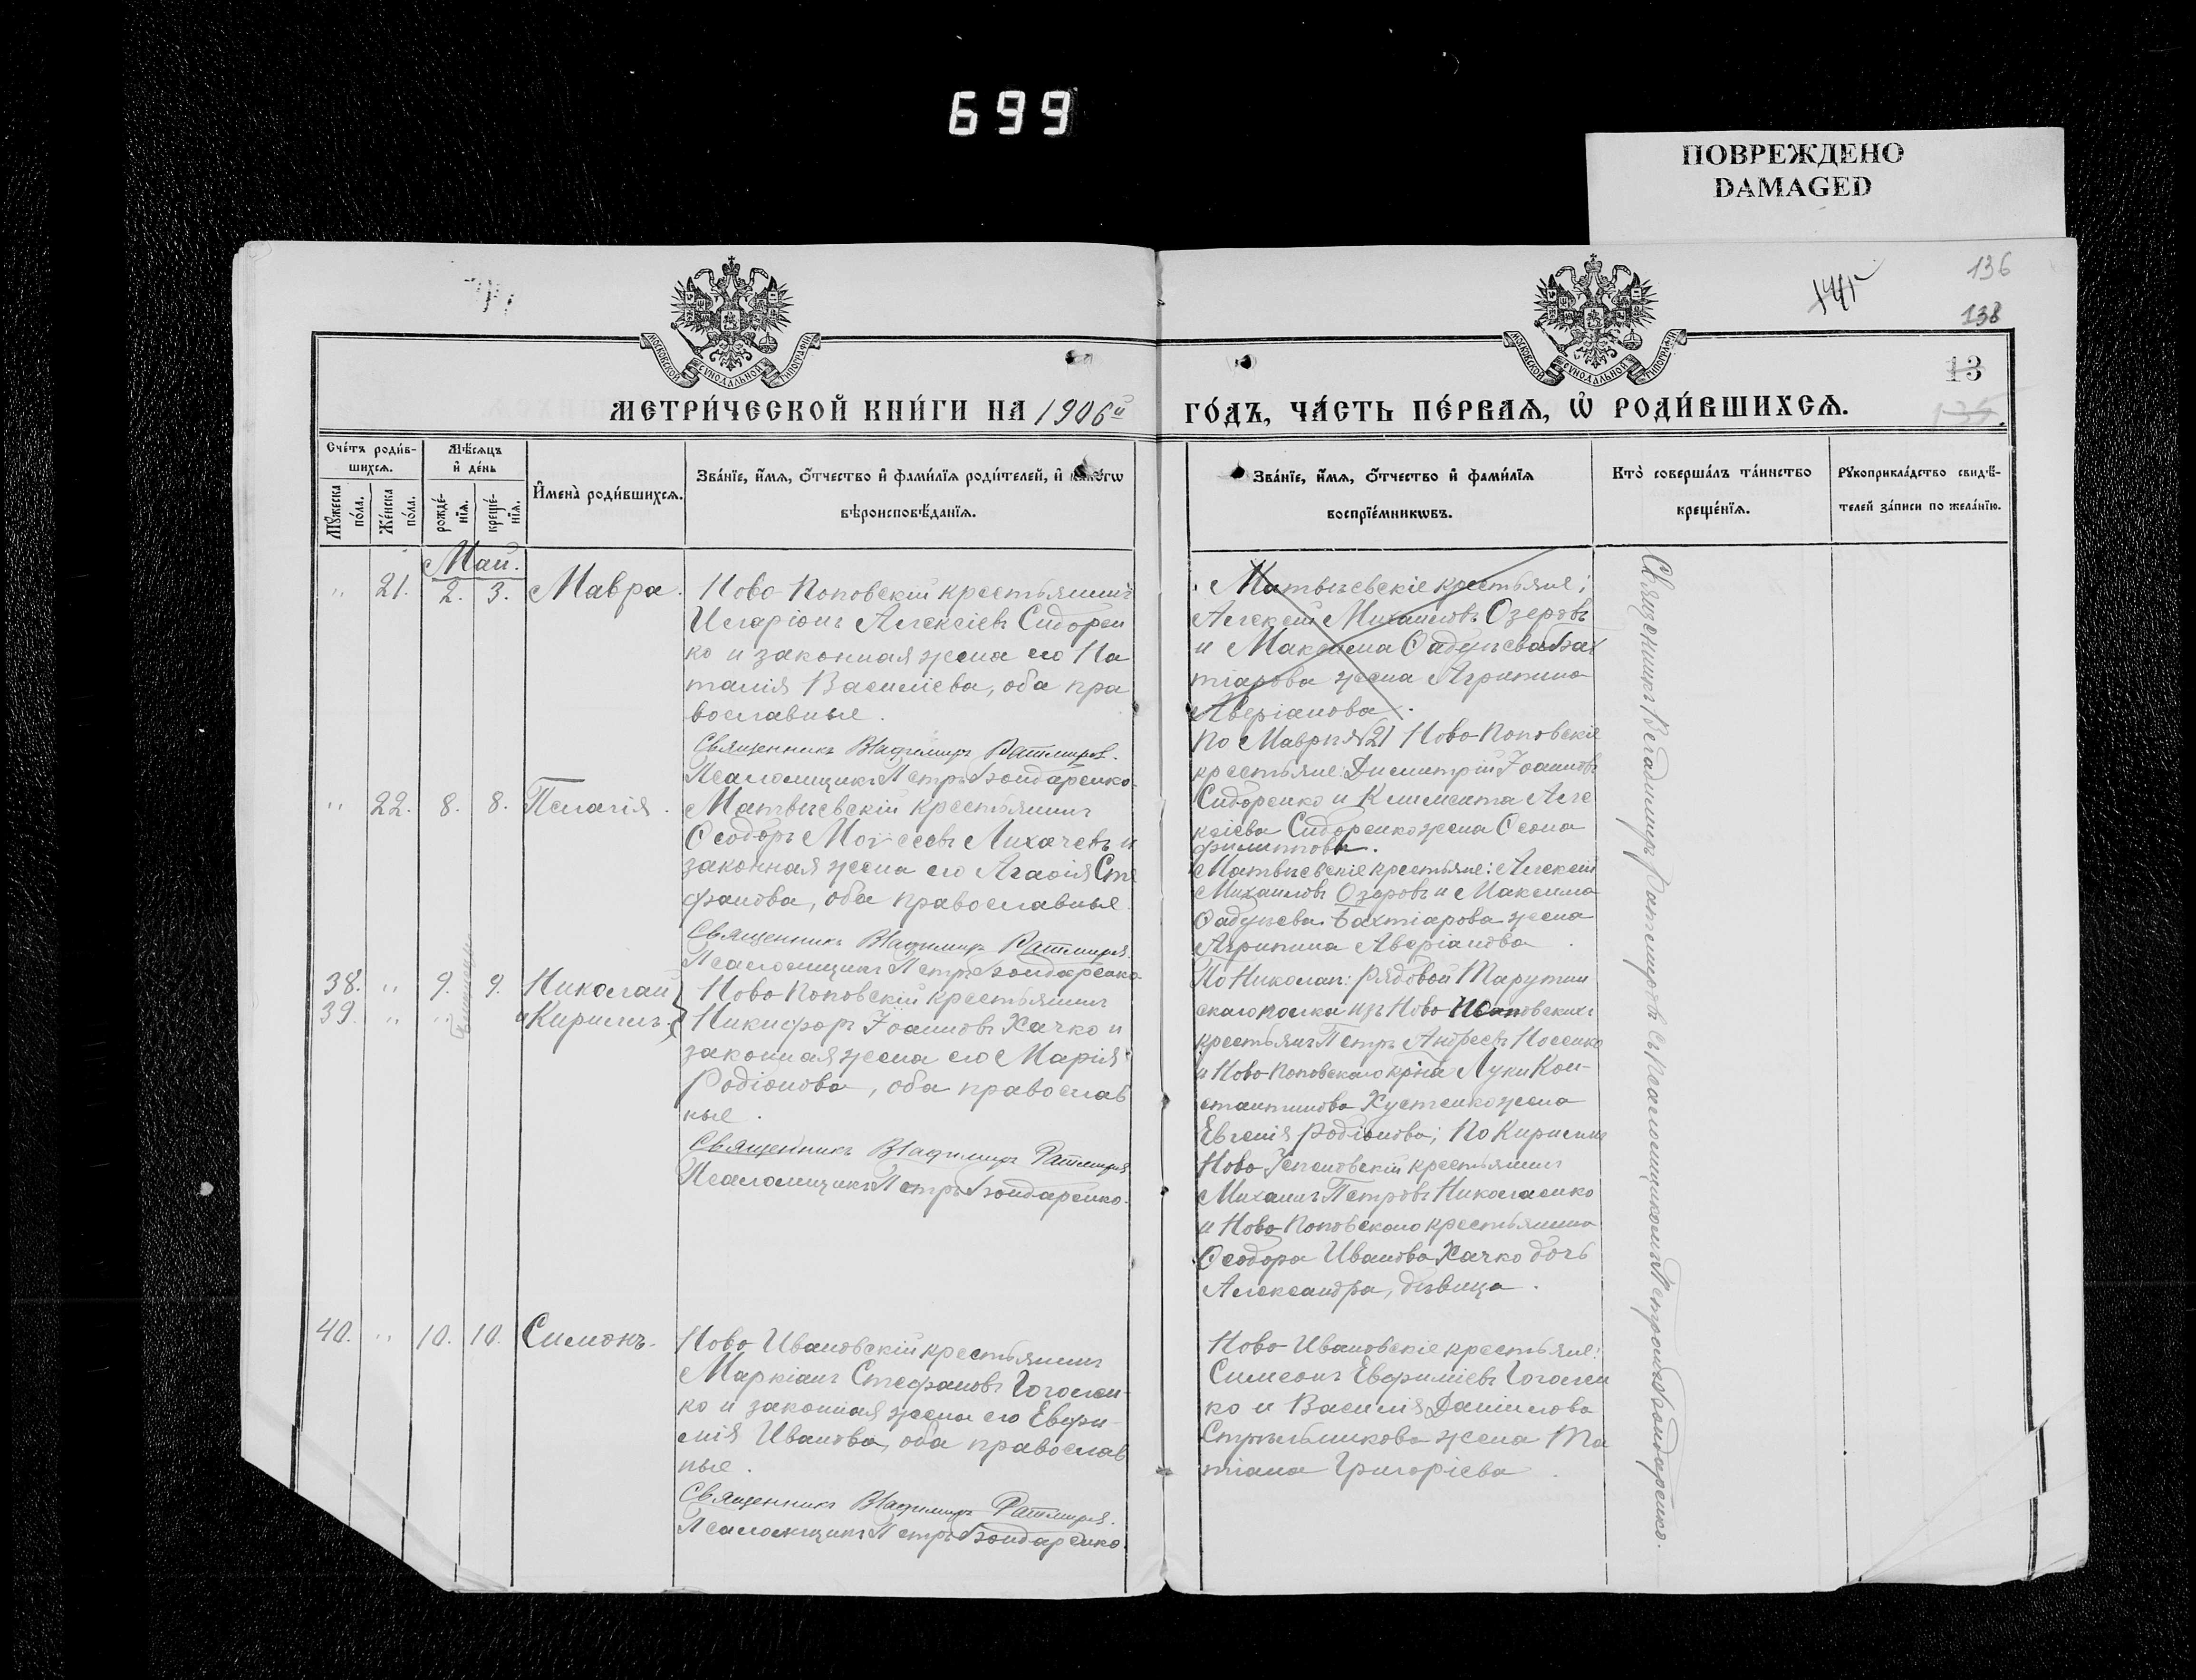 699
ПОВРЕЖДЕНО
DAMAGED
136
138
13
МОСКОВСКОЙ СѴНОДАЛЬНОЙ ТИПОГРАФІИ
МОСКОВСКОЙ СѴНОДАЛЬНОЙ ТИПОГРАФІИ
МЕТРИ́ЧЕСКОЙ КНИ́ГИ НА 1906й
ГО́ДЪ, ЧА́СТЬ ПЕ́РВАѦ, Ѽ РОДИ́ВШИХСѦ.
Сче́тъ роди́в-
шихсѧ.
Мꙋ́жеска по́ла.
Же́нска по́ла.
Мѣ́сѧцъ
и҆ де́нь
рожде́-нїѧ.
креще́-нїѧ.
И҆мена̀ роди́вшихсѧ.
Зва́нїе, и҆́мѧ, ѻ҆́тчество и҆ фами́лїѧ роди́телей, и҆ како́гѡ
вѣроисповѣ́данїѧ.
Зва́нїе, и҆́мѧ, ѻ҆́тчество и҆ фами́лїѧ
воспрїе́мникѡвъ.
Кто̀ соверша́лъ та́инство
креще́нїѧ.
Рꙋкоприкла́дство свидѣ́-
телей за́писи по жела́нїю.
Май.
" 21. 2. 3. Мавра.
Ново-Поповскій крестьянинъ
Иларіонъ Алексіевъ Сидорен
ко и законная жена его На
талія Василіева, оба пра
вославные.
Священникъ Владимиръ Ратмиров.
Псаломщикъ Петръ Бондаренко.
Матвѣевскіе крестьяне:
Алексій Михаиловъ Озеровъ
и Максима Фадѣева Бах
тіарова жена Агрипина
Аверіанова.
По Маврѣ №21 Ново-Поповскіе
крестьяне: Димитрій Іоанновъ
Сидоренко и Климента Але
ксіева Сидоренко жена Феона
Филиппова.
" 22. 8. 8. Пелагія.
Матвѣевскій крестьянинъ
Феодоръ Моѵсеевъ Лихачевъ и
законная жена его Агафія Сте
фанова, оба православные
Священникъ Владимиръ Ратмиров.
Псаломщикъ Петръ Бондаренко.
Матвѣевскіе крестьяне: Алексій
Михаиловъ Озеровъ и Максима
Фадѣева Бахтіарова жена
Агрипина Аверіанова.
38. " 9. 9. Николай
39. " " и Кириллъ.
близнецы
Ново-Поповскій крестьянинъ
Никифоръ Іоанновъ Хачко и
законная жена его Марія
Родіонова, оба православ
ные.
Священникъ Владимиръ Ратмиров.
Псаломщикъ Петръ Бондаренко.
По Николаѣ: рядовой Тарутин
скаго полка изъ Ново-Поповскихъ
крестьянъ Петръ Андреевъ Носенко
и Ново-Поповскаго кр-на Луки Кон-
стантинова Хустенко жена
Евгенія Родіонова; По Кириллѣ
Ново-Успеновскій крестьянинъ
Михаилъ Петровъ Николаенко
и Ново-Поповскаго крестьянина
Феодора Иванова Хачко дочь
Александра, дѣвица.
40. " 10. 10. Симонъ.
Ново-Ивановскій крестьянинъ
Маркіанъ Стефановъ Гоголен-
ко и законная жена его Евфи-
мія Иванова, оба православ
ные.
Священникъ Владимиръ Ратмиров.
Псаломщикъ Петръ Бондаренко.
Ново-Ивановскіе крестьяне:
Симеонъ Евфиміевъ Гоголен
ко и Василія Даніилова
Стрѣльникова жена Та
тіана Григоріева.
Священникъ Владимиръ Ратмировъ съ Псаломщикомъ Петромъ Бондаренко.